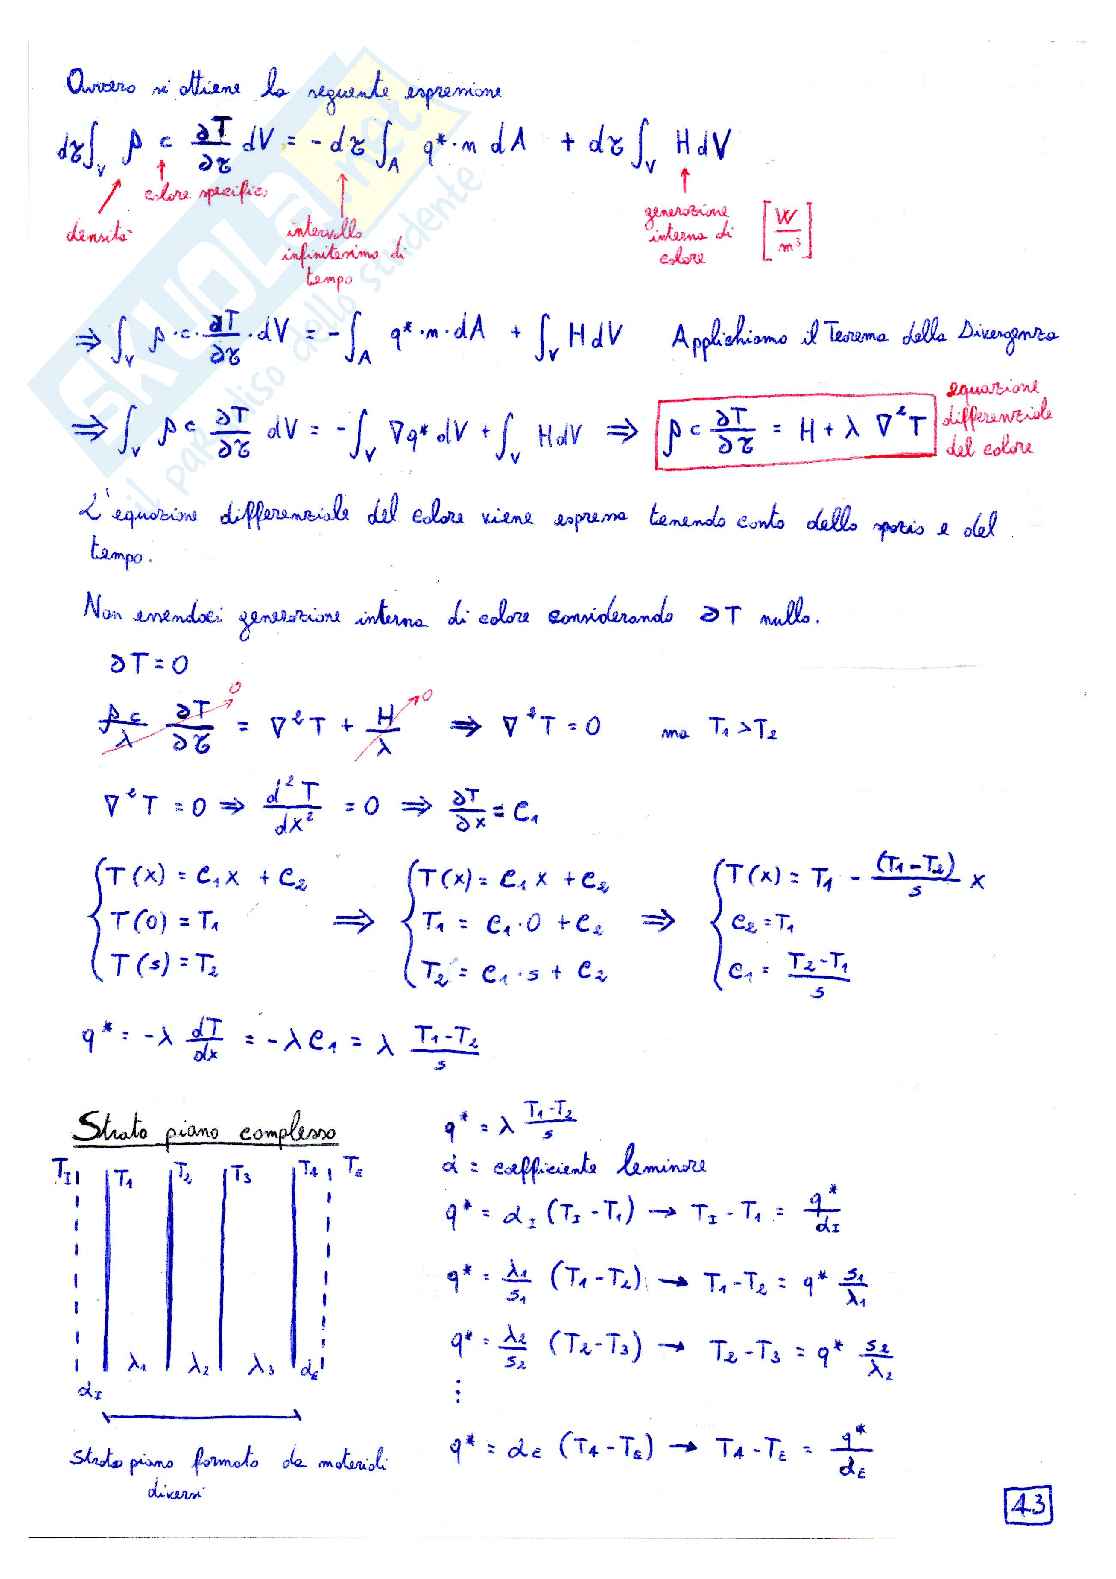 Ovvero si ottiene la seguente espressione
dτ∫_V ρ c ∂T/∂τ dV = - dτ ∫_A q*·n dA + dτ ∫_V H dV
densità
calore specifico
intervallo infinitesimo di tempo
generazione interna di calore
[W/m³]
⇒ ∫_V ρ·c·∂T/∂τ·dV = -∫_A q*·n·dA + ∫_V H dV Applichiamo il Teorema della Divergenza
⇒ ∫_V ρ c ∂T/∂τ dV = -∫_V ∇q* dV + ∫_V H dV ⇒ ρ c ∂T/∂τ = H + λ ∇²T
equazione differenziale del calore
L'equazione differenziale del calore viene espressa tenendo conto dello spazio e del
tempo.
Non essendoci generazione interna di calore considerando ∂T nullo.
∂T = 0
ρc/λ ∂T/∂τ →0 = ∇²T + H/λ →0 ⇒ ∇²T = 0 ma T₁ > T₂
∇²T = 0 ⇒ d²T/dx² = 0 ⇒ ∂T/∂x = C₁
{ T(x) = C₁x + C₂ { T(x) = C₁x + C₂ { T(x) = T₁ - (T₁-T₂)/s x
T(0) = T₁ ⇒ T₁ = C₁·0 + C₂ ⇒ C₂ = T₁
T(s) = T₂ T₂ = C₁·s + C₂ C₁ = T₂-T₁/s
q* = -λ dT/dx = -λ C₁ = λ T₁-T₂/s
Strato piano complesso
T_I T₁ T₂ T₃ T₄ T_E
λ₁ λ₂ λ₃ α_E
α_I
Strato piano formato da materiali
diversi
q* = λ T₁-T₂/s
α = coefficiente leminare
q* = α_I (T_I - T₁) → T_I - T₁ = q*/α_I
q* = λ₁/s₁ (T₁-T₂) → T₁-T₂ = q* s₁/λ₁
q* = λ₂/s₂ (T₂-T₃) → T₂-T₃ = q* s₂/λ₂
⋮
q* = α_E (T₄-T_E) → T₄-T_E = q*/α_E
43
SKUOLA.net
il paradiso dello studente